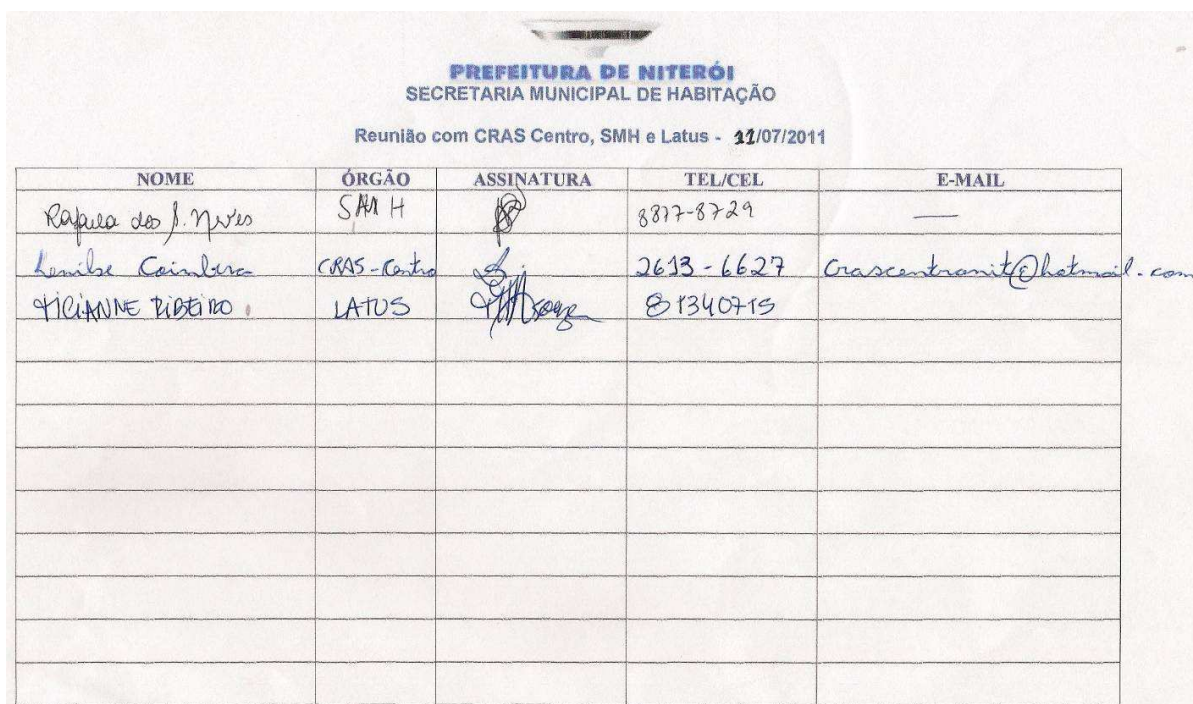 PREFEITURA DE NITERÓI
SECRETARIA MUNICIPAL DE HABITAÇÃO
Reunião com CRAS Centro, SMH e Latus - 11/07/2011
NOME ÓRGÃO ASSINATURA TEL/CEL E-MAIL
Rafaela dos S. Neves SMH 8877-8729 —
Lenilse Coimbra CRAS-Centro 2613-6627 crascentronit@hotmail.com
TICIANNE RIBEIRO LATUS 81340715